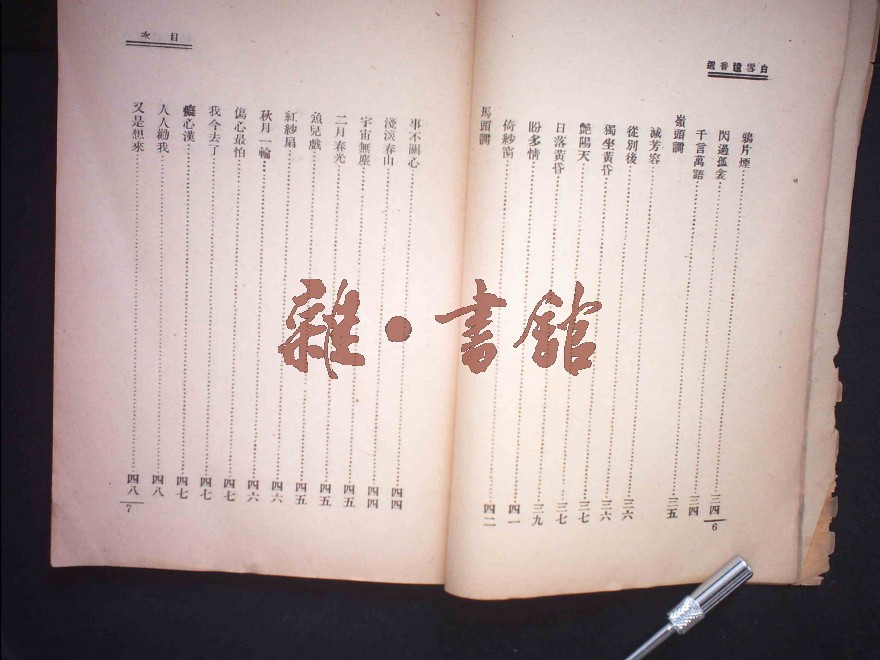 白雪遺音選
鴉片煙……三四
閃過孤衾……三四
千言萬語……三五
嶺頭調
減芳容……三六
從別後……三六
獨坐黃昏……三七
艷陽天……三七
日落黃昏……三九
盼多情……四一
倚紗窗……四二
馬頭調
6
目次
事不關心……四四
淺淡春山……四四
宇宙無塵……四五
二月春光……四五
魚兒戲……四五
紅紗扇……四六
秋月一輪……四六
傷心最怕……四七
我今去了……四七
癡心漢……四七
人人勸我……四八
又是想來……四八
7
雜·書館